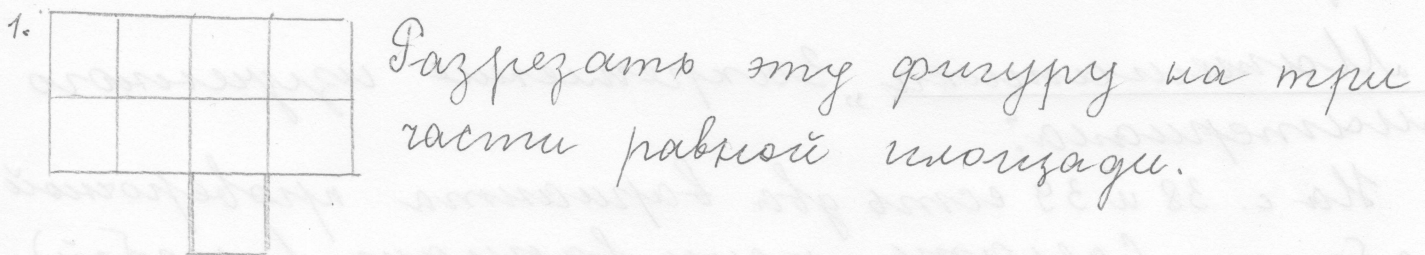 1. Разрезать эту фигуру на три
части равной площади.